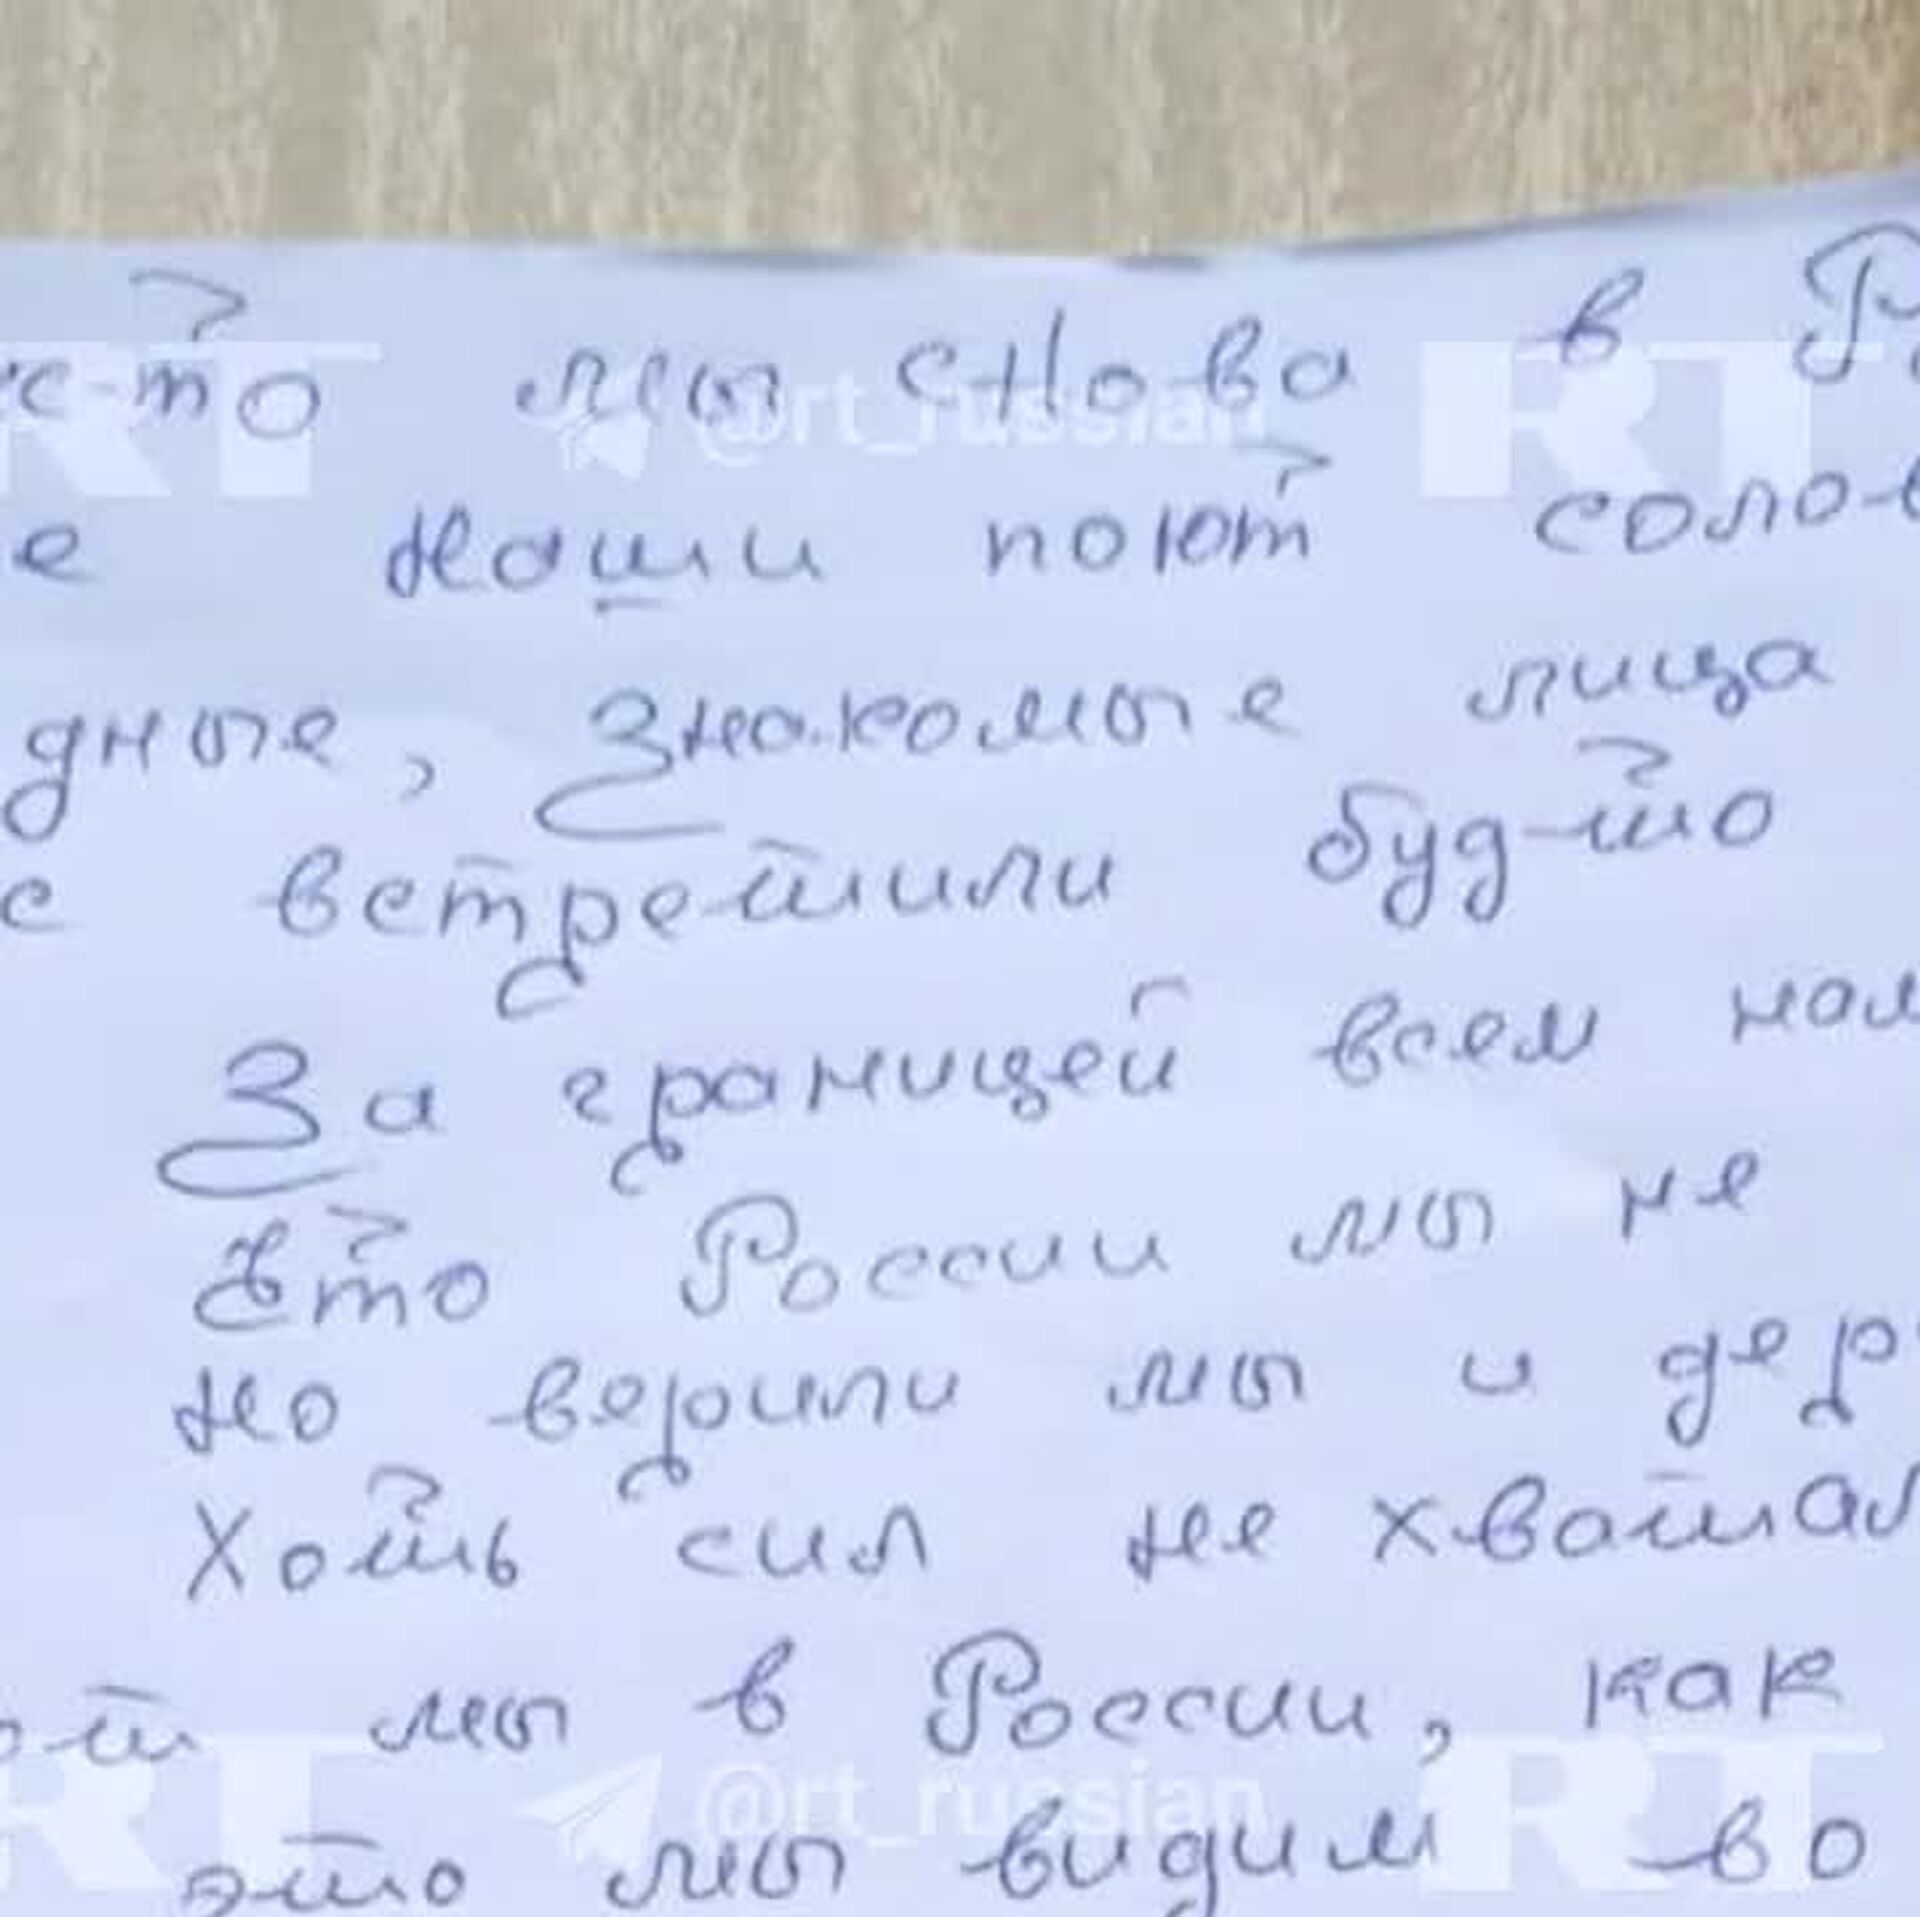 с-то мы снова в Р
е Наши поют солов
дные, Знакомые лица
с встретили буд-то
За границей всем нам
Что России мы не
Но верили мы и дер
Хоть сил не хватал
от мы в России, как
это мы видим во
RT @rt_russian RT
RT @rt_russian RT